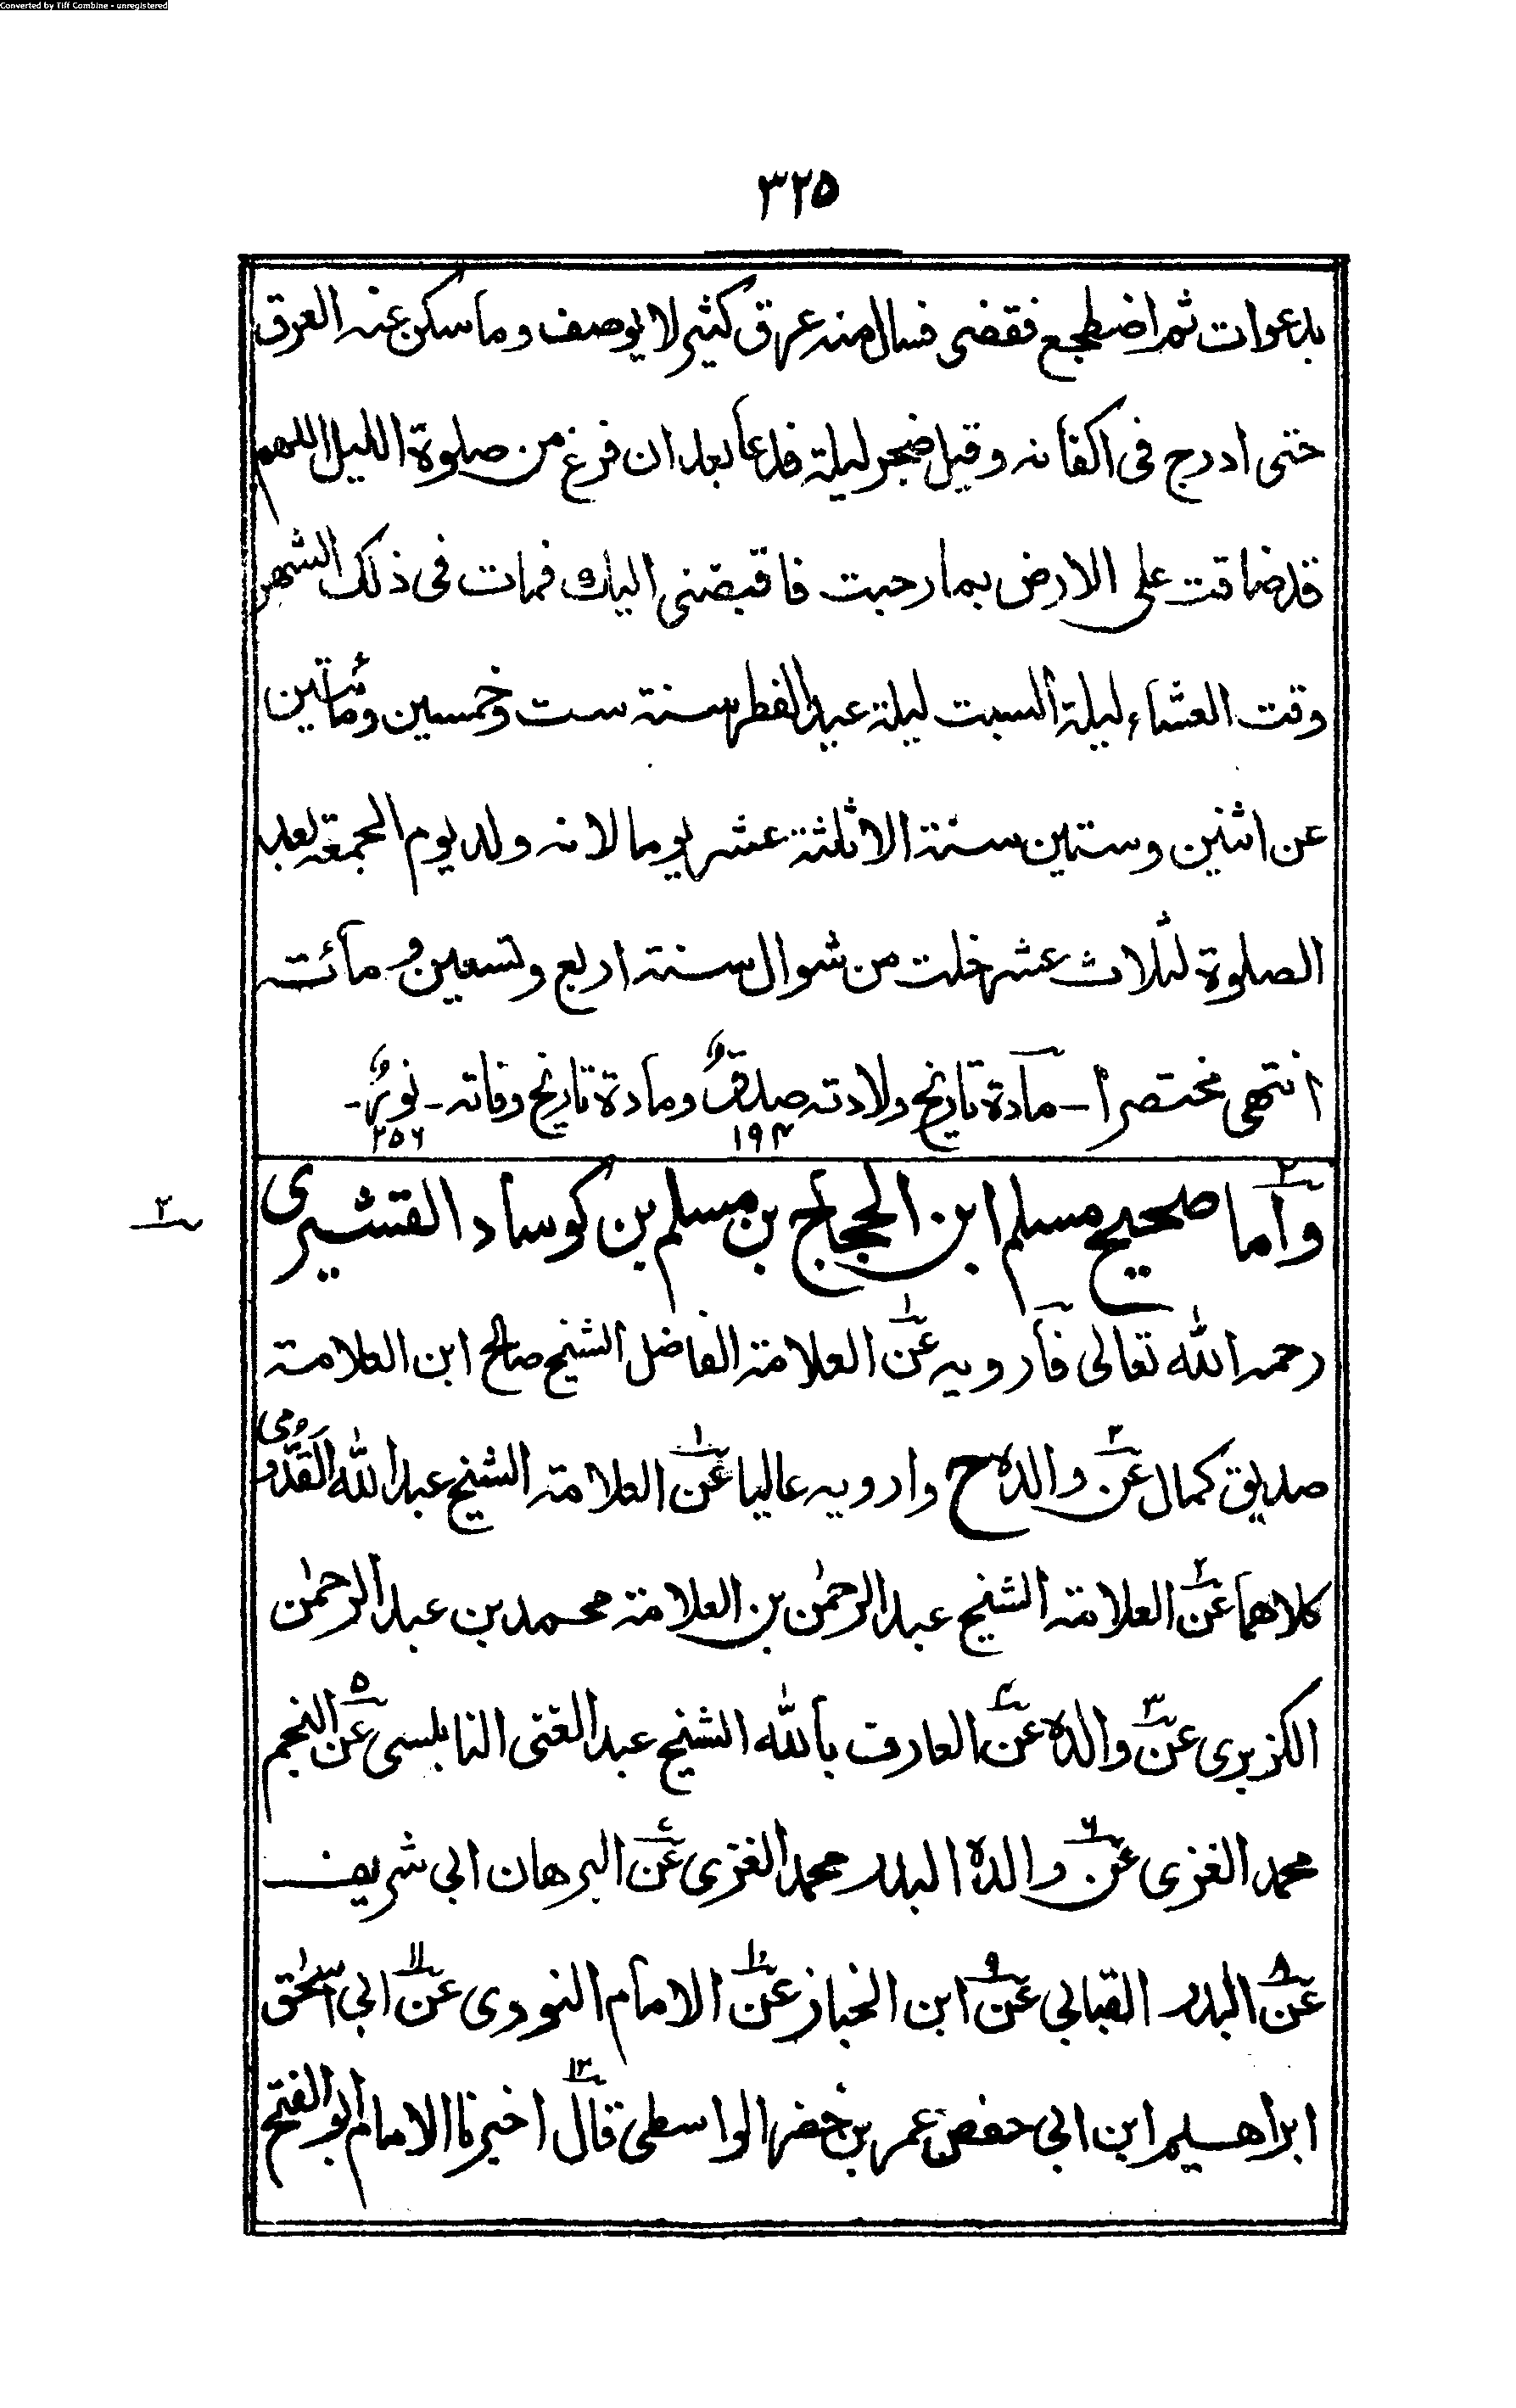 Converted by Tiff Combine - unregistered
٣٢٥
بدعوات ثم اضطجع فقضى فسال منه عرق كثير لا يوصف وما سكن عنه العرق
حتى ادرج فى اكفانه وقيل ضجر ليلة فدعا بعد ان فرغ من صلوة الليل اللهم
قد ضاقت على الارض بما رحبت فاقبضنى اليك فمات فى ذلك الشهر
وقت العشاء ليلة السبت ليلة عيد الفطر سنة ست وخمسين ومائتين
عن اثنين وستين سنة الا ثلثة عشر يوما لانه ولد يوم الجمعة بعد
الصلوة لثلاث عشر خلت من شوال سنة اربع وتسعين و مائة
انتهى مختصرا - مادة تاريخ ولادته صدقٌ ومادة تاريخ وفاته - نورٌ -
١٩٤ ٢٥٦
٢
وأما صحيح مسلم ابن الحجاج بن مسلم بن كوساد القشيرى
٢
رحمه الله تعالى فأرويه عن١ العلامة الفاضل الشيخ صالح ابن العلامة
صديق كمال عن٢ والده ح وارويه عاليا عن١ العلامة الشيخ عبد الله القدومى
كلاهما عن٢ العلامة الشيخ عبد الرحمٰن بن العلامة محمد بن عبد الرحمٰن
الكزبرى عن٣ والده عن٤ العارف بالله الشيخ عبد الغنى النابلسى عن٥ النجم
محمد الغزى عن٦ والده البدر محمد الغزى عن٧ البرهان ابى شريف
عن٨ البدر القبابى عن٩ ابن الخباز عن١٠ الامام النووى عن١١ ابى اسحٰق
ابراهيم ابن ابى حفص عمر بن خضر الواسطى قال١٢ اخبرنا الامام ابو الفتح